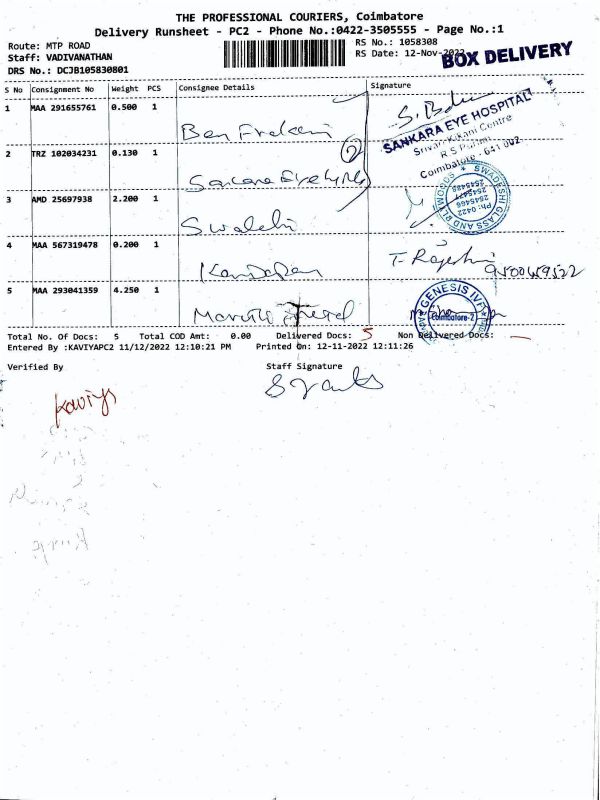 THE PROFESSIONAL COURIERS, Coimbatore
Delivery Runsheet - PC2 - Phone No.:0422-3505555 - Page No.:1
Route: MTP ROAD
Staff: VADIVANATHAN
DRS No.: DCJB105830801
RS No.: 1058308
RS Date: 12-Nov-2022
BOX DELIVERY
S No Consignment No Weight PCS Consignee Details Signature
1 MAA 291655761 0.500 1
SANKARA EYE HOSPITAL
Coimbatore - 641 002
2 TRZ 102034231 0.130 1
2
3 AMD 25697938 2.200 1
SWADESHI GLASS AND PLYWOODS
Ph: 0422
4 MAA 567319478 0.200 1
T. Rajesh
5 MAA 293041359 4.250 1
GENESIS IVF
Coimbatore-2
Total No. Of Docs: 5 Total COD Amt: 0.00 Delivered Docs: 5 Non Delivered Docs: —
Entered By :KAVIYAPC2 11/12/2022 12:10:21 PM Printed On: 12-11-2022 12:11:26
Verified By Staff Signature
Kaviya